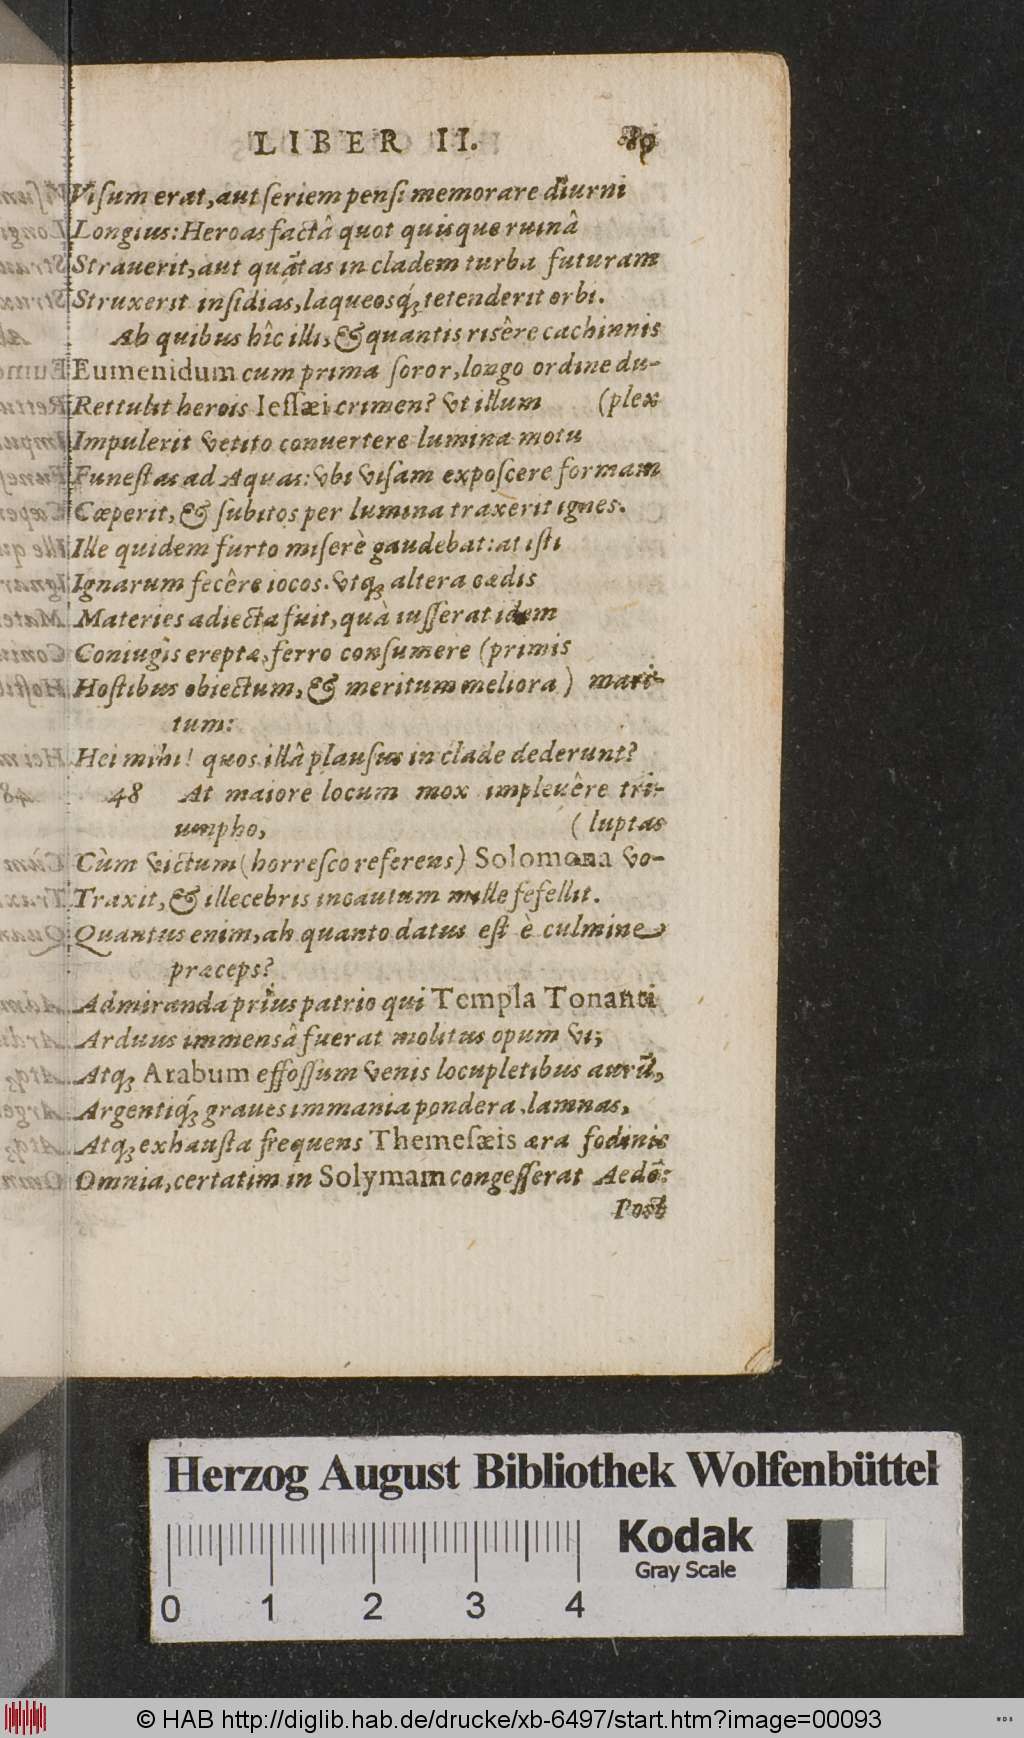 LIBER II. 89
Viſum erat, aut ſeriem penſi memorare diurni
Longius: Heroas factâ quot quisque ruinâ
Strauerit, aut quãtas in cladem turba futuram
Struxerit inſidias, laqueosq́; tetenderit orbi.
Ab quibus hîc illi, & quantis risêre cachinnis
Eumenidum cum prima ſoror, longo ordine du-
Rettulit herois Ieſſæi crimen? Vt illum (plex
Impulerit vetito conuertere lumina motu
Funeſtas ad Aquas: vbi viſam expoſcere formam
Cœperit, & ſubitos per lumina traxerit ignes.
Ille quidem furto miſerè gaudebat: at iſti
Ignarum fecêre iocos. vtq; altera cædis
Materies adiecta fuit, quà iuſſerat idem
Coniugis ereptæ, ferro conſumere (primis
Hoſtibus obiectum, & meritum meliora) mari-
tum:
Hei mihi! quos illâ plauſus in clade dederunt?
48 At maiore locum mox impleuêre tri-
umpho, (luptas
Cùm victum (horreſco referens) Solomona vo-
Traxit, & illecebris incautum mille fefellit.
Quantus enim, ah quanto datus eſt è culmine
præceps?
Admiranda priùs patrio qui Templa Tonanti
Arduus immensâ fuerat molitus opum vi;
Atq; Arabum effoſſum venis locupletibus aurũ,
Argentiq́; graues immania pondera, lamnas,
Atq; exhauſta frequens Themeſæis æra fodinis
Omnia, certatim in Solymam congeſſerat Aedẽ:
Post
Herzog August Bibliothek Wolfenbüttel
Kodak
Gray Scale
0 1 2 3 4
© HAB http://diglib.hab.de/drucke/xb-6497/start.htm?image=00093